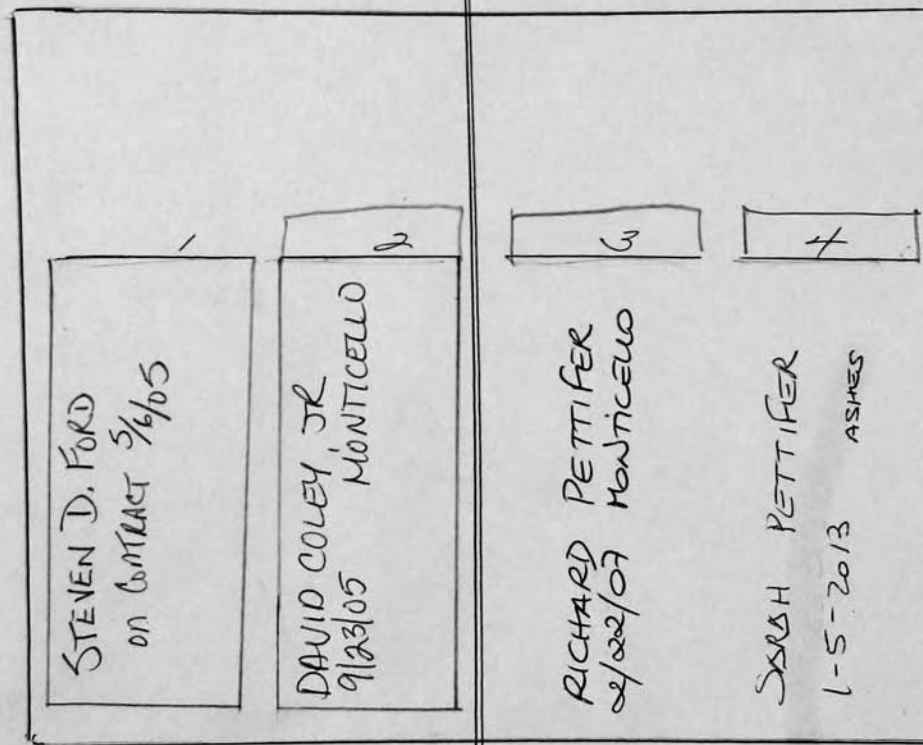 1
STEVEN D. FORD
on CONTRACT 5/6/05
2
DAVID COLEY JR
9/23/05 MONTICELLO
3
RICHARD PETTIFER
2/22/07 MONTICELLO
4
SARAH PETTIFER
1-5-2013 ASHES